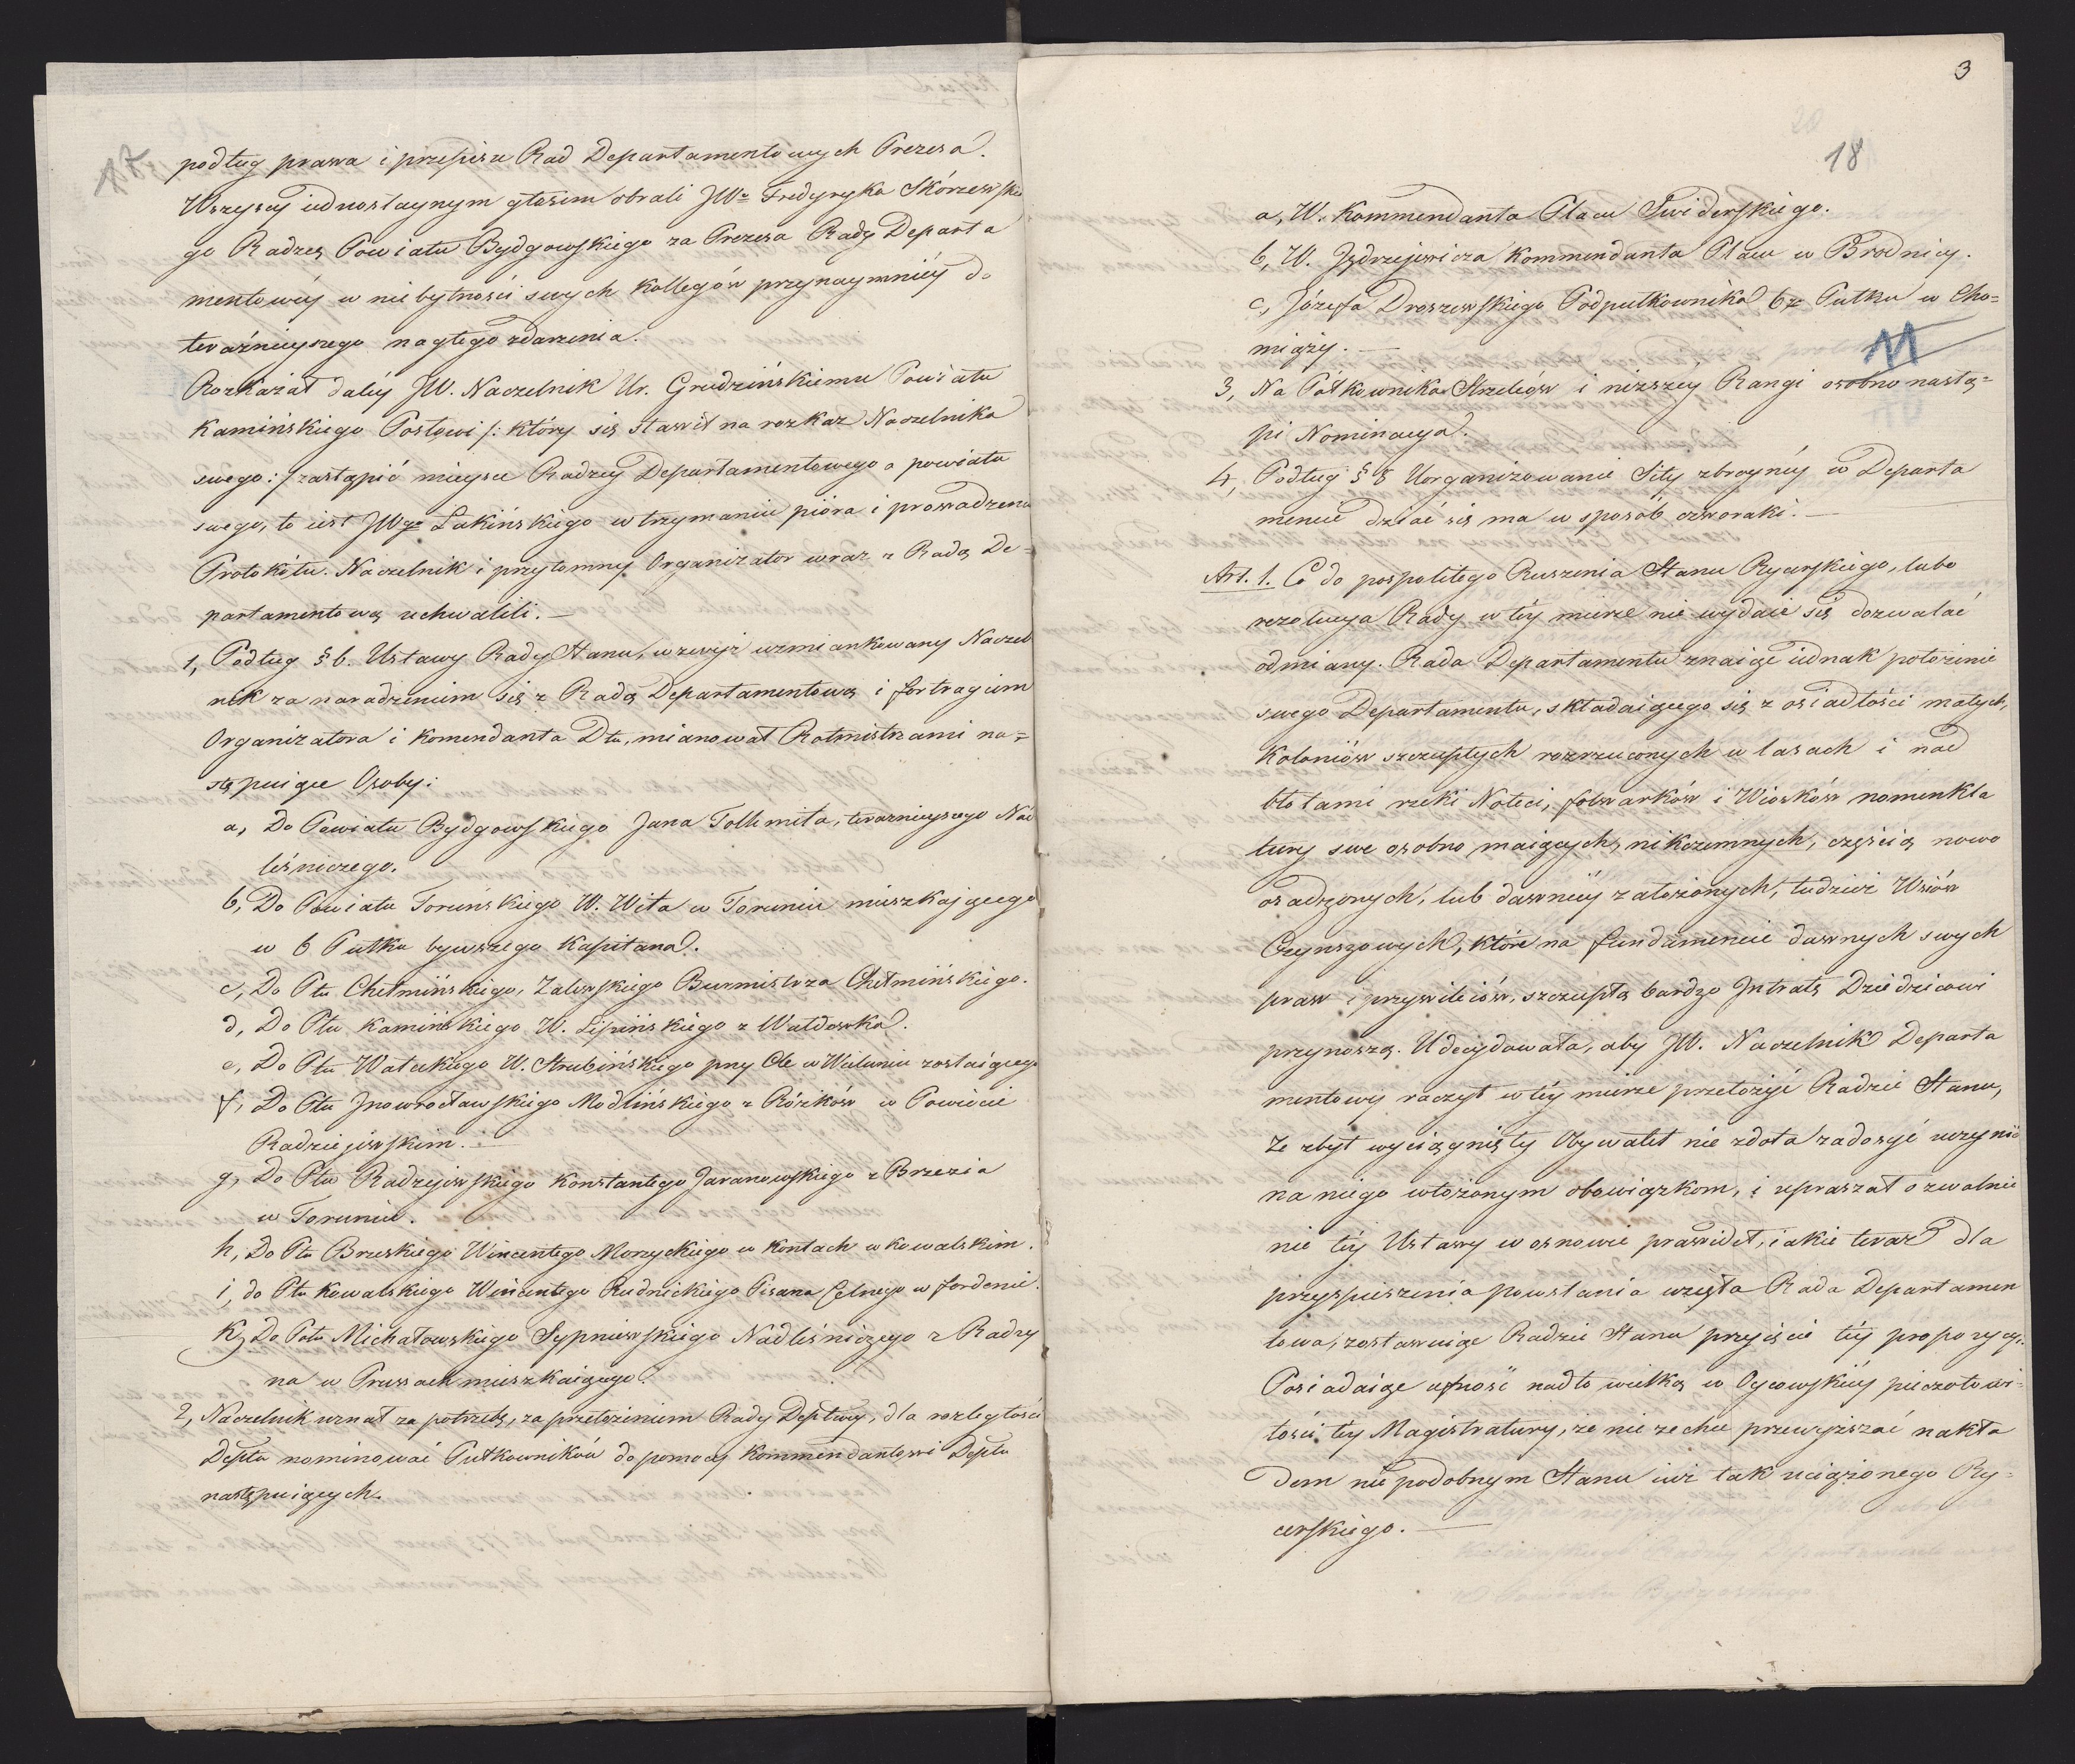 17
podług prawa i przepisu Rad Departamentowych Prezesa.
Wszyscy iednostaynym głosem obrali JWo Fredyryka Skórzewskie
go Radzcę Powiatu Bydgowskiego za Prezesa Rady Departa
mentowéy w niebytności swych kollegów przynaymniéy do
teraźnieyszego nagłego zdarzenia.
Rozkazał daléy JW. Naczelnik Ur. Grudzińskiemu Powiatu
Kamińskiego Posłowi /: który się stawił na rozkaz Naczelnika
swego :/ zastąpić mieysce Radzcy Departamentowego a powiatu
swego, to iest JWgo Łakińskiego w trzymaniu pióra i prowadzeniu
Protokółu. Naczelnik i przytomny Organizator wraz z Radą De=
partamentową uchwalili. —
1, Podług § 6. Ustawy Rady Stanu, wzwyż wzmiankowany Naczel
nik za naradzeniem się z Radą Departamentową i fortragiem
Organizatora i Komendanta Dtu, mianował Rotmistrzami na=
stępuiące Osoby:
a, Do Powiatu Bydgowskiego Jana Tollemita, teraznieyszego Nad
leśniczego.
b, Do Powiatu Toruńskiego W. Wita w Toruniu mieszkającego
w 6 Pułku bywszego Kapitana.
c, Do Ptu Chełmińskiego, Zalewskiego Burmistrza Chełmińskiego.
d, Do Ptu Kamińskiego W. Lipińskiego z Wałdowka.
e, Do Ptu Wałeckiego W. Strubińskiego przy Cle w Wieluniu zostaiącego
f, Do Ptu Jnowrocławskiego Modlińskiego z Różków w Powiecie
Radziejewskim.
g, Do Ptu Radziejewskiego Konstantego Jaranowskiego z Brzezia
w Toruniu.
h, Do Ptu Brzeskiego Wincentego Morzyckiego w Kontach w Kowalskim.
i, do Ptu Kowalskiego Wincentego Rudnickiego Pisarza Celnego w fordonie.
k, Do Potu Michałowskiego Sypniewskiego Nadleśniczego z Radzy
na w Prusach mieszkaiącego.
2, Naczelnik uznał za potrzebę, za przełożeniem Rady Deptwey, dla rozległości
Deptu nominować Pułkowników do pomocy Kommendantowi Deptu
następuiących.
3
20
18
a, W. Kommendanta Placu Swiderskiego.
b, W. Jędrzejewicza Kommendanta Placu w Brodnicy.
c, Józefa Droszewskiego Podpułkownika 6go Pułku w Cho=
miąży. —
11
3, Na Półkownika Strzelców i niższéy Rangi osobno nastą=
pi Nominacya.
4, Podług § 8 Uorganizowanie Siły zbroynéy w Departa
mencie dziać się ma w sposób czworaki. —
Art. 1. Co do pospolitego Ruszenia Stanu Rycerskiego, lubo
rezolucya Rady w téy mierze nie wydaie się dozwalać
odmiany. Rada Departamentu znaiąc iednak położenie
swego Departamentu, składaiącego się z osiadłości małych,
Koloniów szczupłych rozrzuconych w lasach i nad
błotami rzeki Noteci, folwarków i Wiosków nomenkla
tury swe osobno maiących, nikczemnych, częścią nowo
osadzonych, lub dawniéy założonych, tudzież Wsiów
Czynszowych, które na fundamencie dawnych swych
praw i przywileiów, szczupłą bardzo Jntratę Dziedzicowi
przynoszą. Udecydowała, aby JW. Naczelnik Departa
mentowy raczył w téy mierze przełożyć Radzie Stanu,
że zbyt wyciągnięty Obywatel nie zdoła zadosyć uczynić
na niego włożonym obowiązkom, i upraszał o zwolnie
nie téy Ustawy w osnowie prawideł, iakie teraz dla
przyspieszenia powstania wzięła Rada Departamen
towa, zostawuiąc Radzie Stanu przyięcie téy propozycyi.
Posiadaiąc ufność nadto wielką w Oycowskiéy pieczołowi=
tości téy Magistratury, że nie zechce przewyższać nakła
dem niepodobnym Stanu iuż tak uciążonego Ry=
cerskiego. —